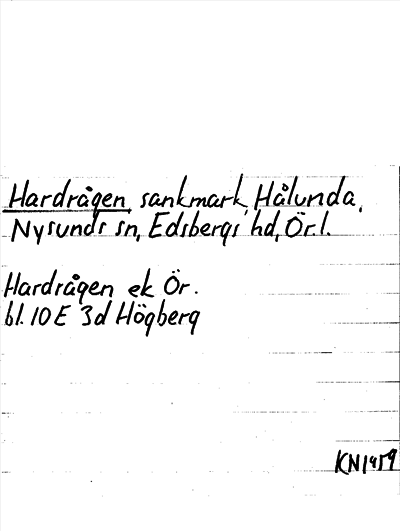 Hardrågen, sankmark, Hålunda,
Nysunds sn, Edsbergs hd, Ör. l.
Hardrågen ek Ör.
bl. 10 E 3d Högberg